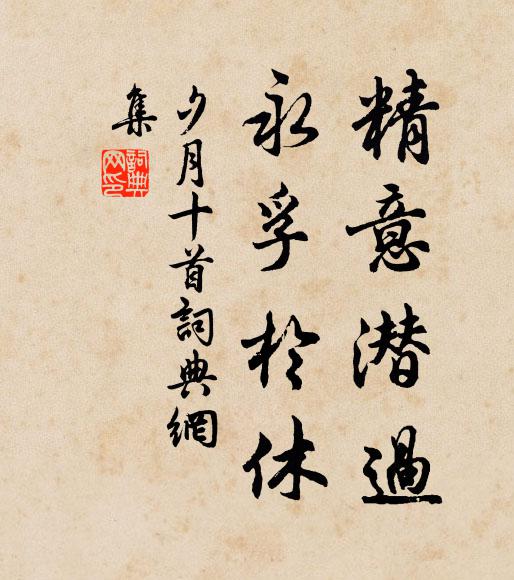 精意潜過
永孚於休
夕月十首詞典網
集
詞典
网印